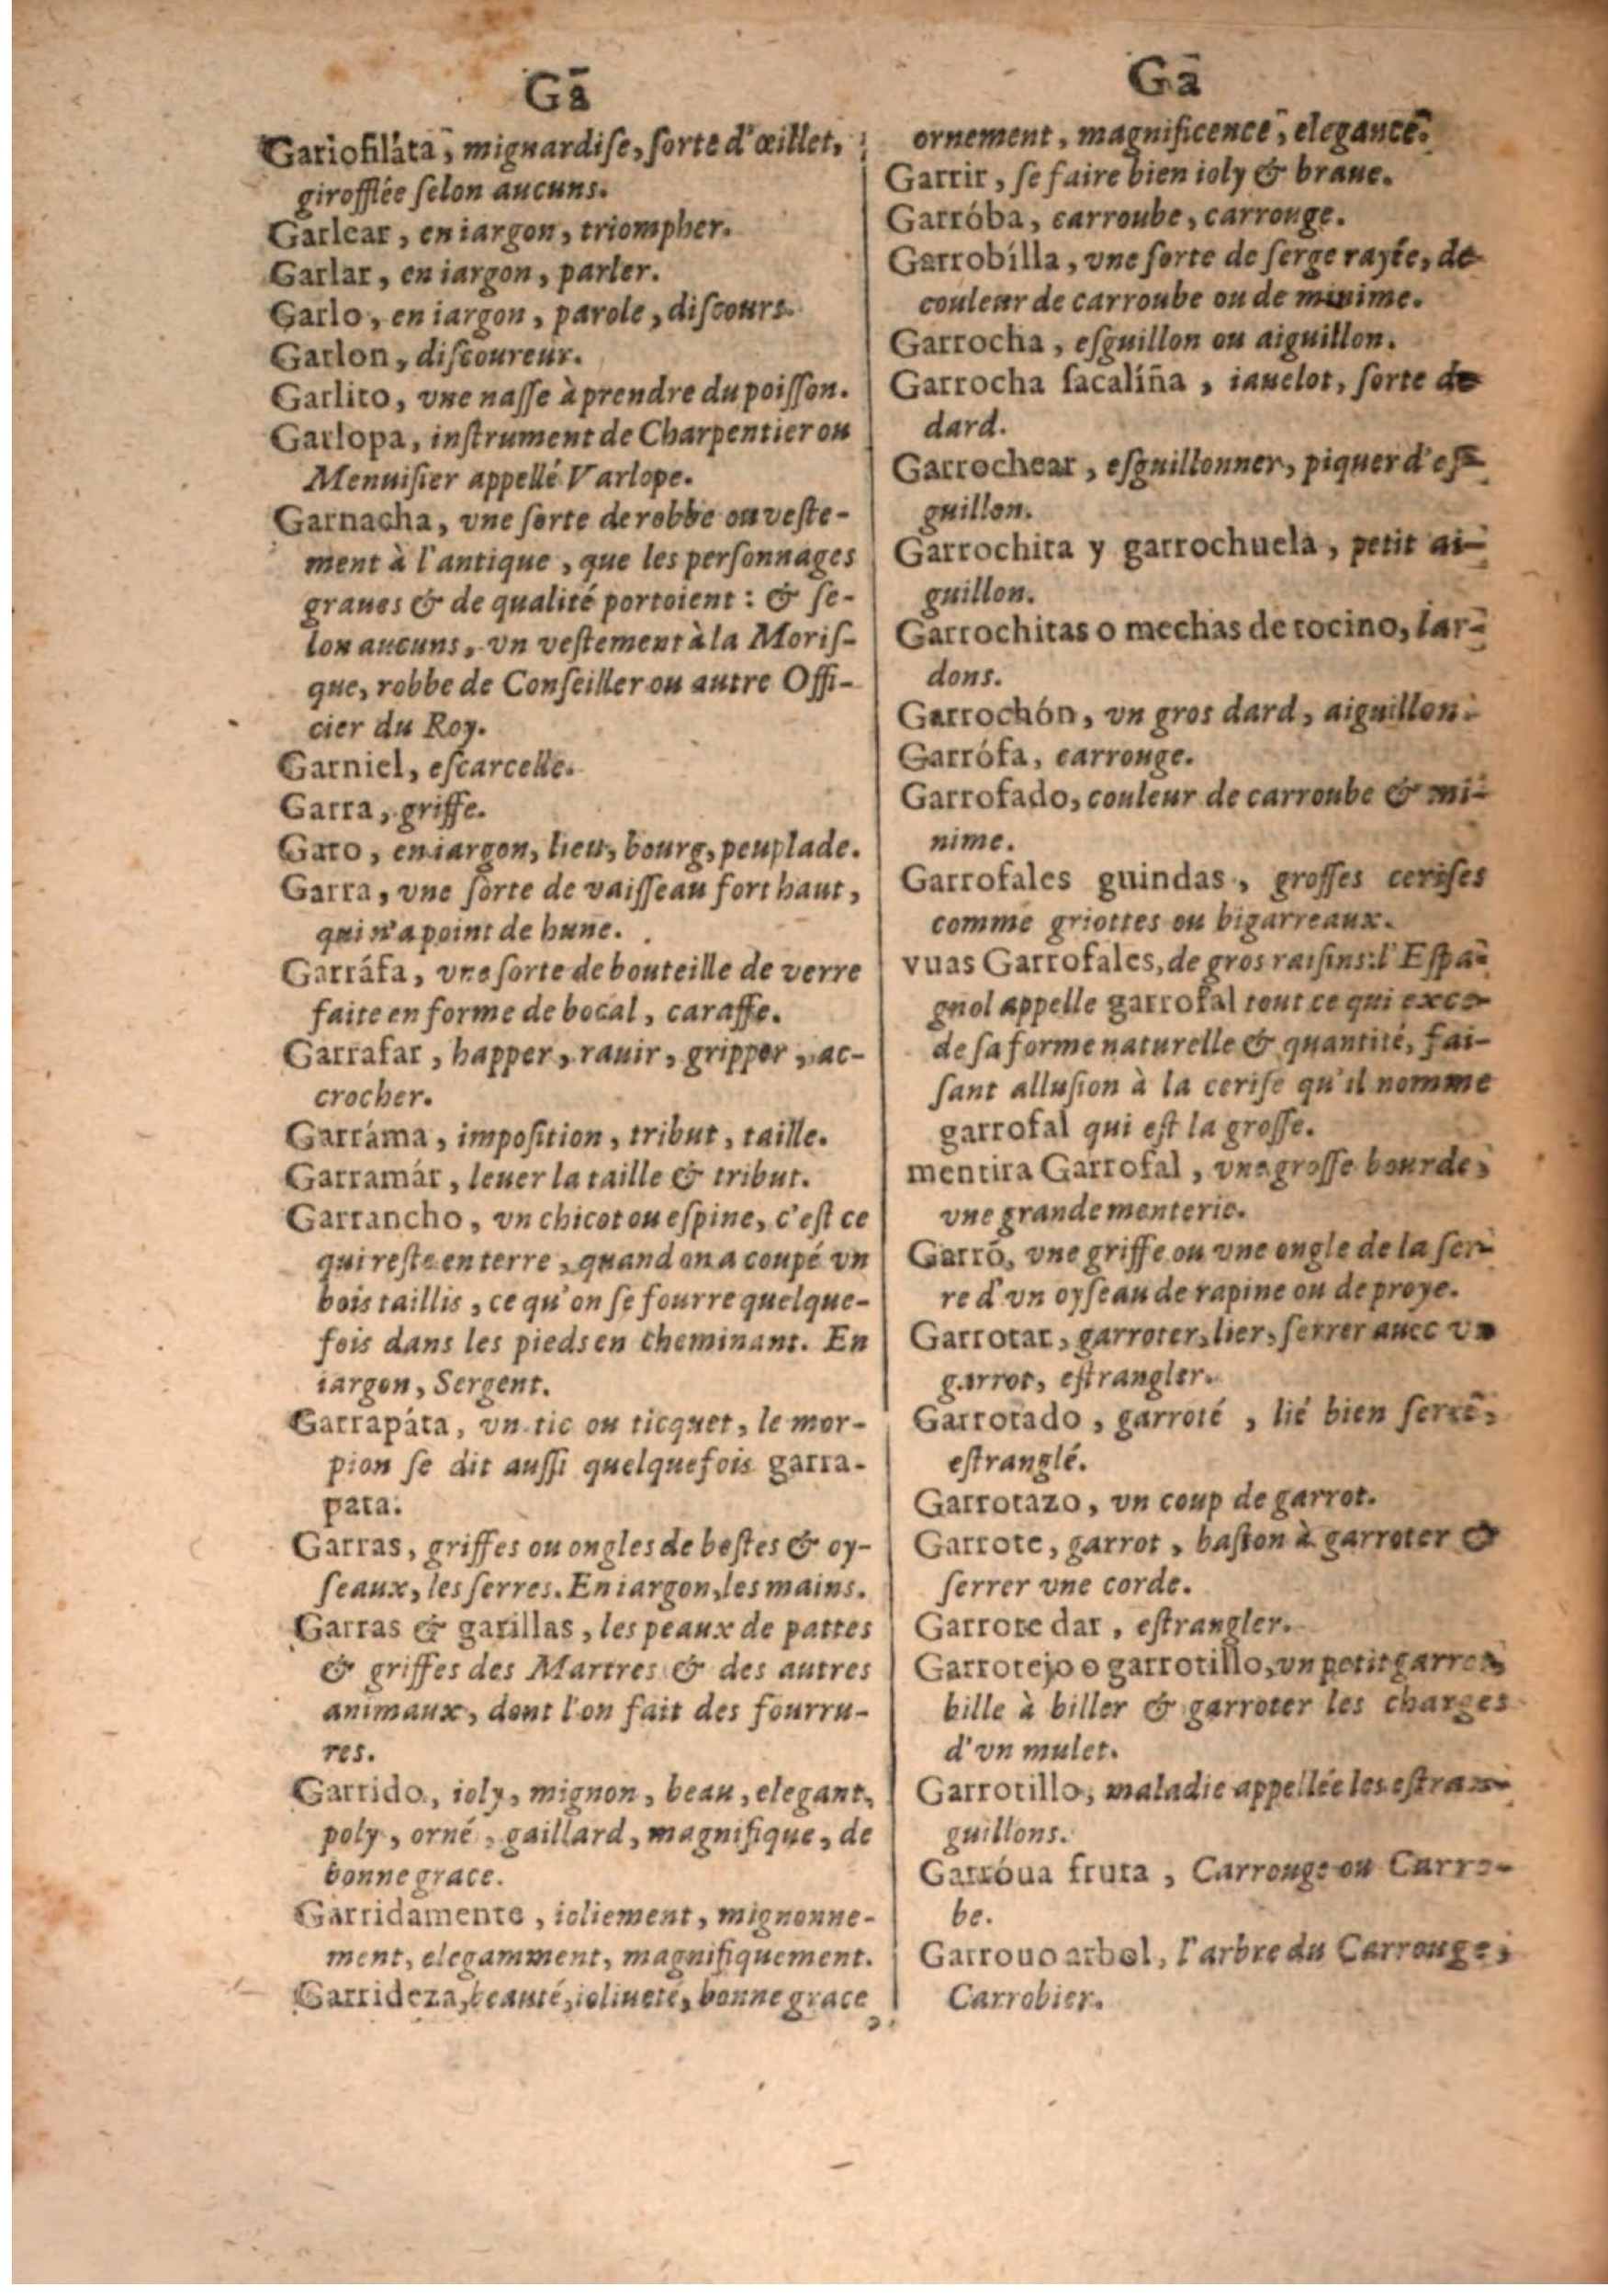 Ga
Gariofiláta, mignardiſe, ſorte d'œillet,
girofflée ſelon aucuns.
Garlear, en iargon, triompher.
Garlar, en iargon, parler.
Garlo, en iargon, parole, diſcours.
Garlon, diſcoureur.
Garlito, vne naſſe à prendre du poiſſon.
Garlopa, inſtrument de Charpentier ou
Menuiſier appellé Varlope.
Garnacha, vne ſorte de robbe ou veſte-
ment à l'antique, que les perſonnages
graues & de qualité portoient : & ſe-
lon aucuns, vn veſtement à la Moriſ-
que, robbe de Conſeiller ou autre Offi-
cier du Roy.
Garniel, eſcarcelle.
Garra, griffe.
Garo, en iargon, lieu, bourg, peuplade.
Garra, vne ſorte de vaiſſeau fort haut,
qui n'a point de hune.
Garráfa, vne ſorte de bouteille de verre
faite en forme de bocal, caraffe.
Garrafar, happer, rauir, gripper, ac-
crocher.
Garráma, impoſition, tribut, taille.
Garramár, leuer la taille & tribut.
Garrancho, vn chicot ou eſpine, c'eſt ce
qui reſte en terre, quand on a coupé vn
bois taillis, ce qu'on ſe fourre quelque-
fois dans les pieds en cheminant. En
iargon, Sergent.
Garrapáta, vn tic ou ticquet, le mor-
pion ſe dit auſſi quelquefois garra-
pata.
Garras, griffes ou ongles de beſtes & oy-
ſeaux, les ſerres. En iargon, les mains.
Garras & garillas, les peaux de pattes
& griffes des Martres & des autres
animaux, dont l'on fait des fourru-
res.
Garrido, ioly, mignon, beau, elegant,
poly, orné, gaillard, magnifique, de
bonne grace.
Garridamente, ioliement, mignonne-
ment, elegamment, magnifiquement.
Garrideza, beauté, ioliueté, bonne grace,
Ga
ornement, magnificence, elegance.
Garrir, ſe faire bien ioly & braue.
Garróba, carroube, carrouge.
Garrobílla, vne ſorte de ſerge rayée, de
couleur de carroube ou de minime.
Garrocha, eſguillon ou aiguillon.
Garrocha ſacalíña, iauelot, ſorte de
dard.
Garrochear, eſguillonner, piquer d'eſ-
guillon.
Garrochita y garrochuela, petit ai-
guillon.
Garrochitas o mechas de tocino, lar-
dons.
Garrochón, vn gros dard, aiguillon.
Garrófa, carrouge.
Garrofado, couleur de carroube & mi-
nime.
Garrofales guindas, groſſes ceriſes
comme griottes ou bigarreaux.
vuas Garrofales, de gros raiſins: l'Eſpa-
gnol appelle garrofal tout ce qui exce-
de ſa forme naturelle & quantité, fai-
ſant alluſion à la ceriſe qu'il nomme
garrofal qui eſt la groſſe.
mentira Garrofal, vne groſſe bourde,
vne grande menterie.
Garrō, vne griffe ou vne ongle de la ſer-
re d'vn oyſeau de rapine ou de proye.
Garrotar, garroter, lier, ſerrer auec vn
garrot, eſtrangler.
Garrotado, garroté, lié bien ſerré,
eſtranglé.
Garrotazo, vn coup de garrot.
Garrote, garrot, baſton à garroter &
ſerrer vne corde.
Garrote dar, eſtrangler.
Garrotejo o garrotillo, vn petit garrot,
bille à biller & garroter les charges
d'vn mulet.
Garrotillo, maladie appellée les eſtran-
guillons.
Garróua fruta, Carrouge ou Carro-
be.
Garrouo arbol, l'arbre du Carrouge,
Carrobier.